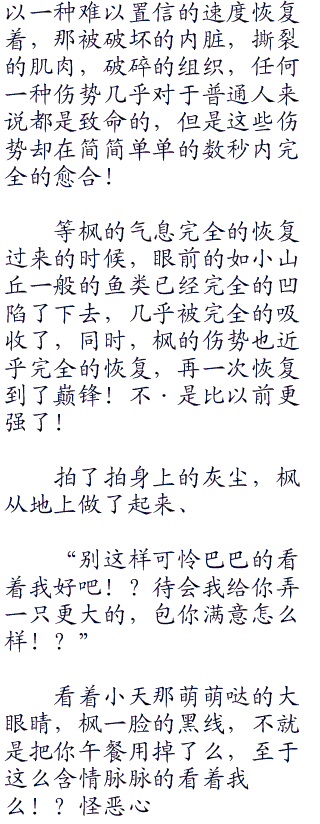 以一种难以置信的速度恢复
着，那被破坏的内脏，撕裂
的肌肉，破碎的组织，任何
一种伤势几乎对于普通人来
说都是致命的，但是这些伤
势却在简简单单的数秒内完
全的愈合！
等枫的气息完全的恢复
过来的时候，眼前的如小山
丘一般的鱼类已经完全的凹
陷了下去，几乎被完全的吸
收了，同时，枫的伤势也近
乎完全的恢复，再一次恢复
到了巅锋！不·是比以前更
强了！
拍了拍身上的灰尘，枫
从地上做了起来、
“别这样可怜巴巴的看
着我好吧！？待会我给你弄
一只更大的，包你满意怎么
样！？”
看着小天那萌萌哒的大
眼睛，枫一脸的黑线，不就
是把你午餐用掉了么，至于
这么含情脉脉的看着我
么！？怪恶心